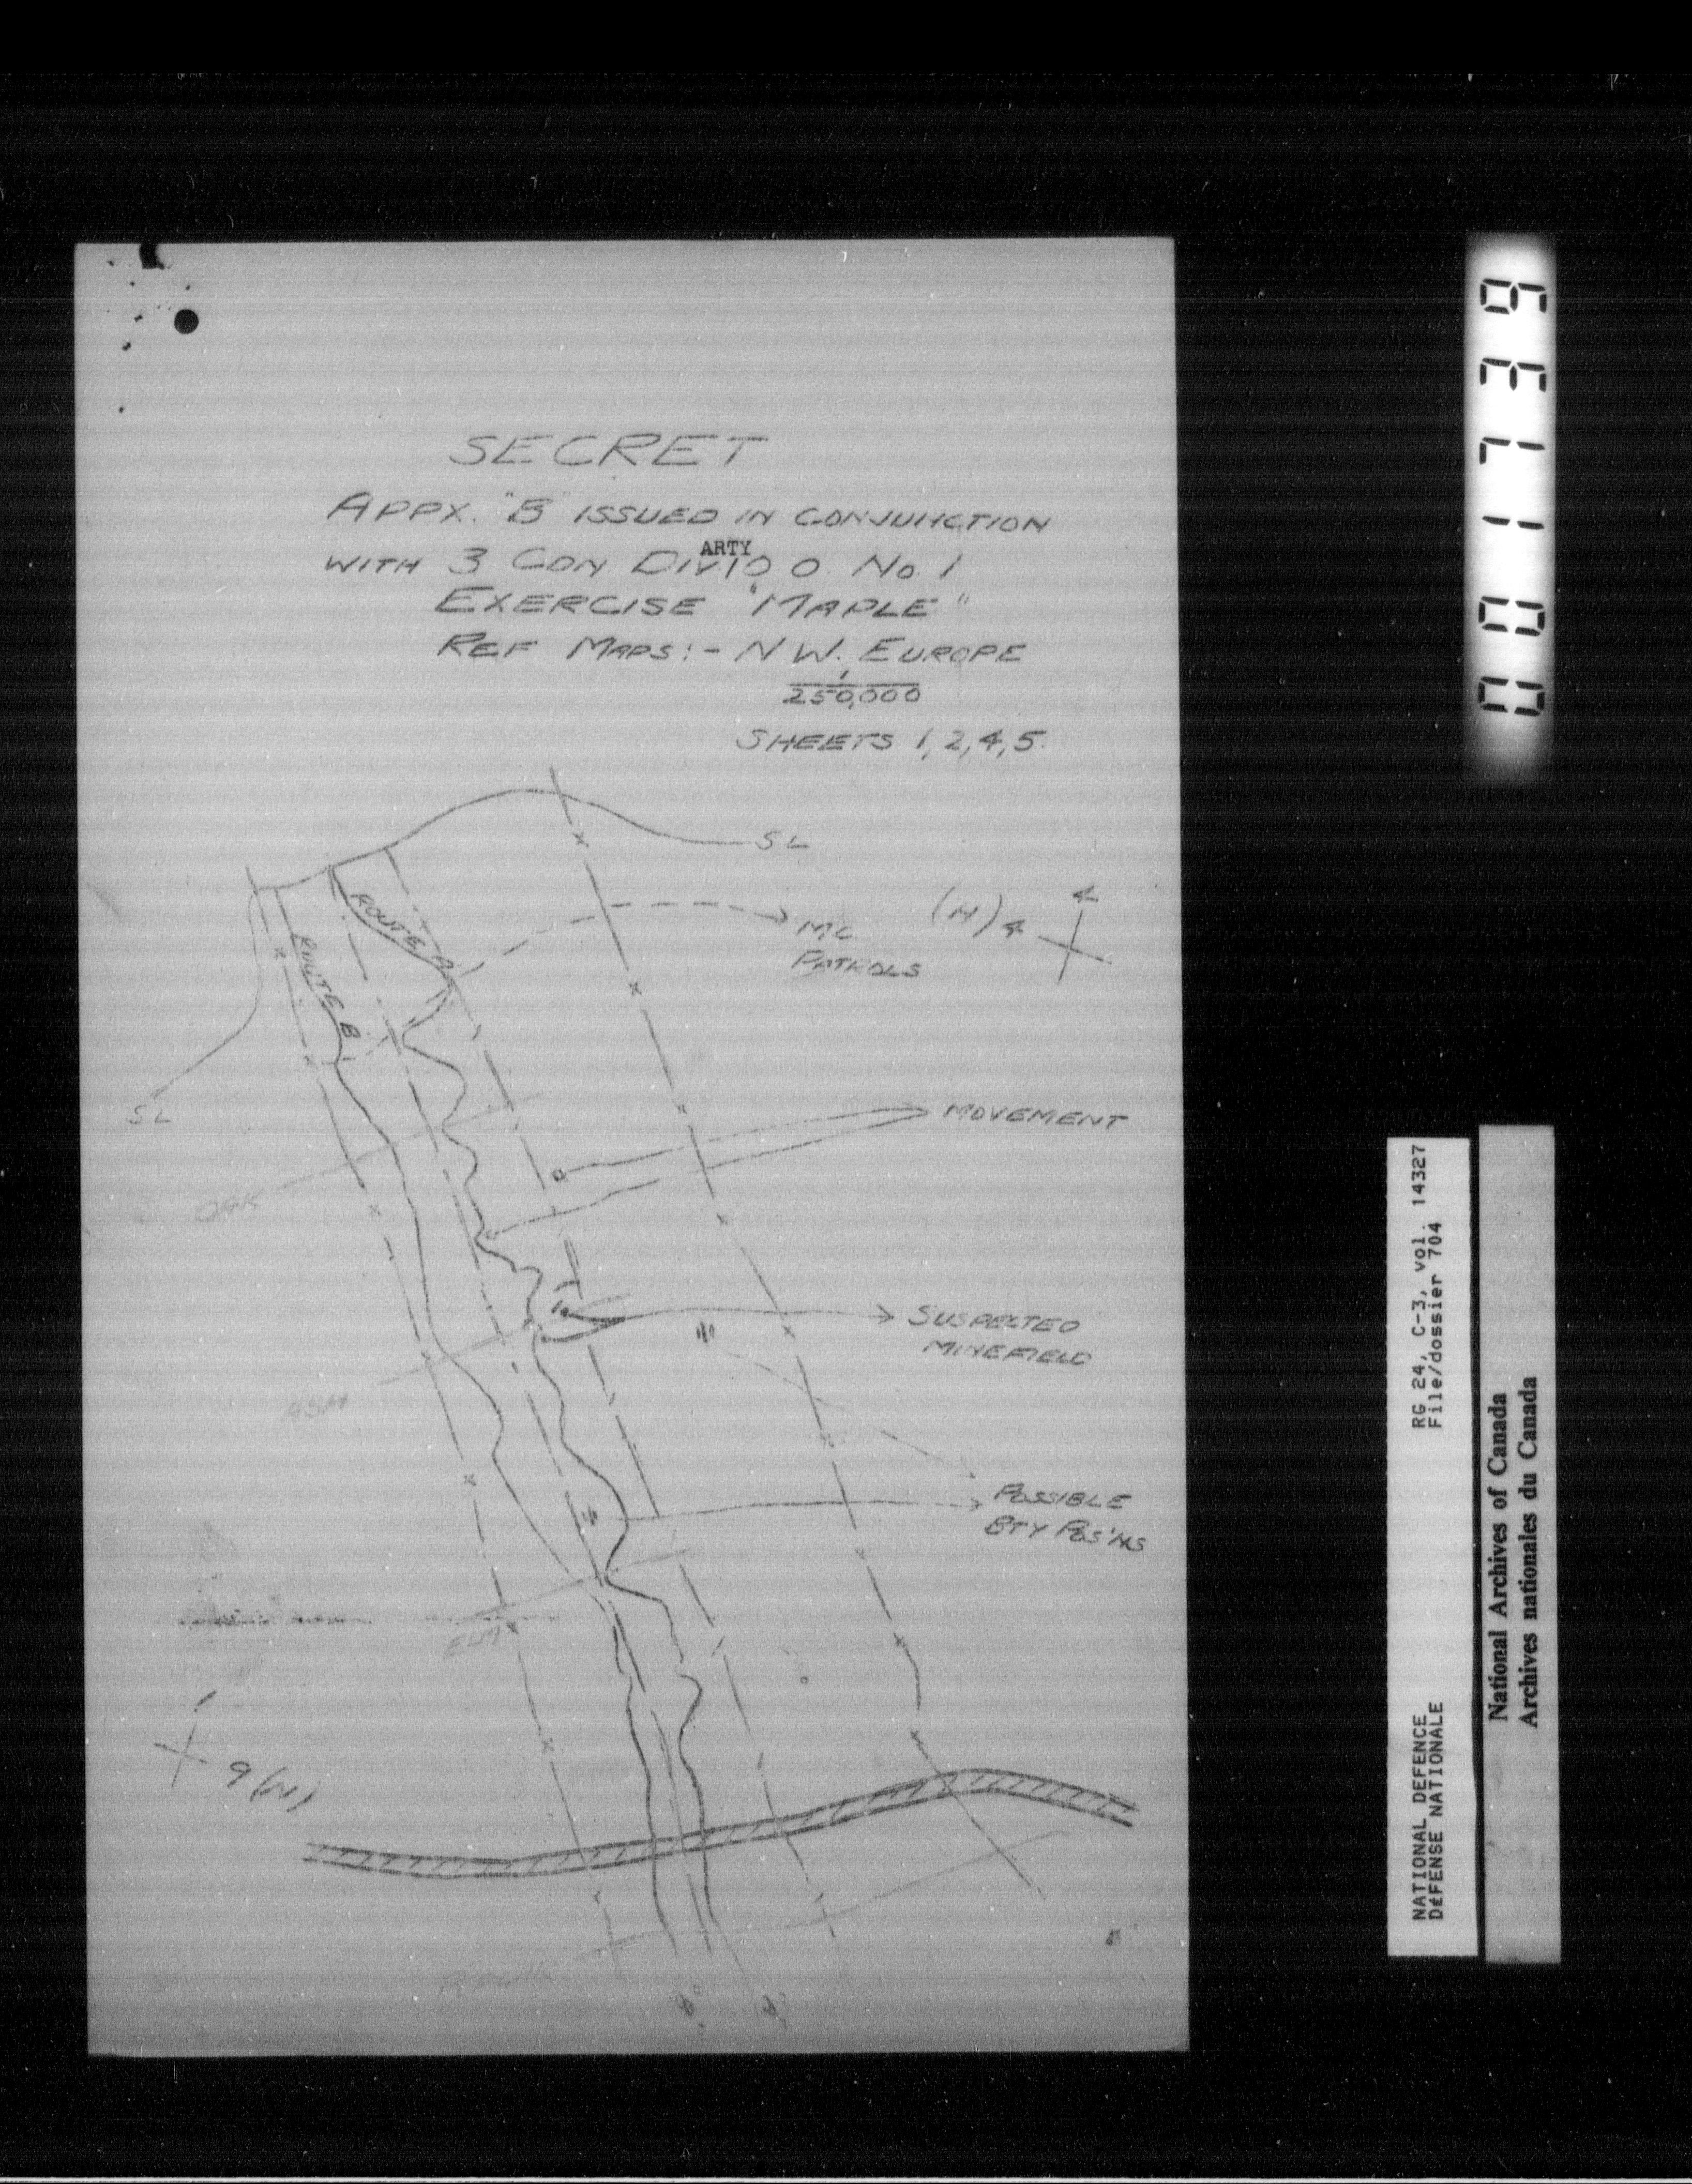 SECRET
APPX. "B" ISSUED IN CONJUNCTION
ARTY
WITH 3 CDN DIV O O No. 1
EXERCISE "MAPLE"
REF MAPS:- N W. EUROPE
1
250,000
SHEETS 1, 2, 4, 5.
SL
ROUTE A
ROUTE B
MC
PATROLS
(H) 4
4
SL
MOVEMENT
OAK
SUSPECTED
MINEFIELD
ASH
POSSIBLE
BTY POS'NS
ELM
1
9 (N)
"B"
"A"
0001739
RG 24, C-3, vol. 14327
File/dossier 704
NATIONAL DEFENCE
DÉFENSE NATIONALE
National Archives of Canada
Archives nationales du Canada